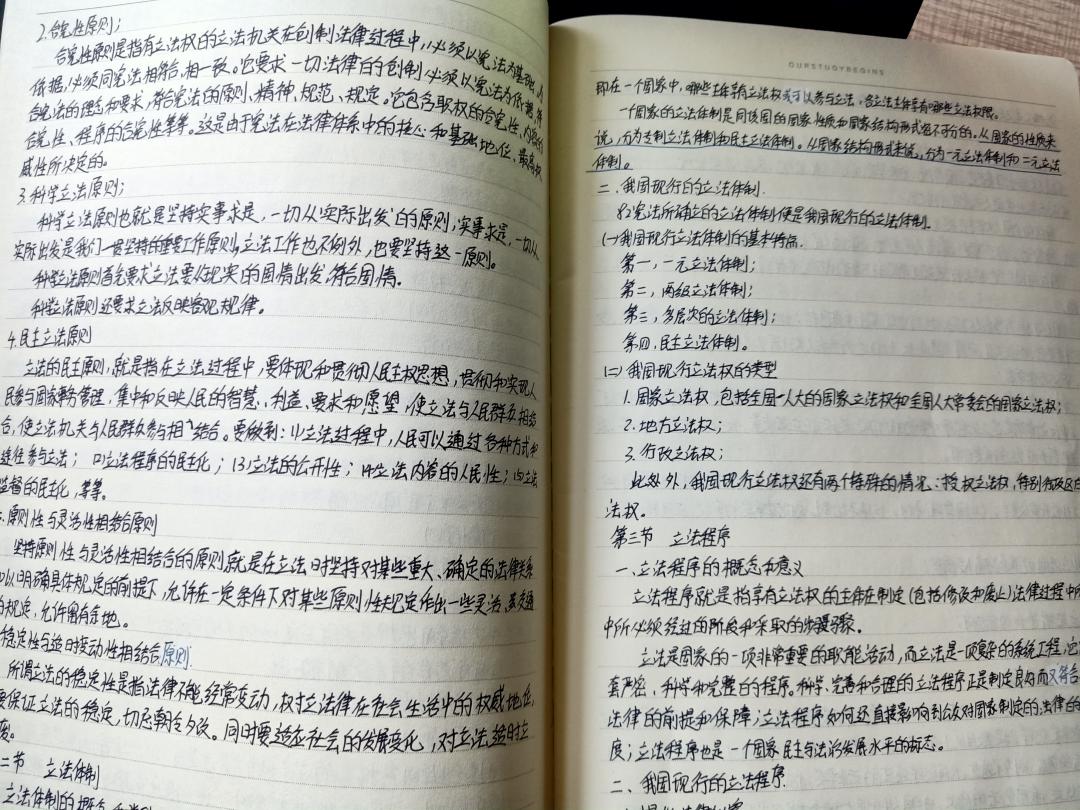 2.合宪性原则;
合宪性原则是指有立法权的立法机关在创制法律过程中,必须以宪法为基础、
依据,必须同宪法相符合、相一致。它要求一切法律的创制必须以宪法为依据,符
合宪法的理念和要求,符合宪法的原则、精神、规范、规定。它包含职权的合宪性、内容的
合宪性、程序的合宪性等等。这是由于宪法在法律体系中的核心和基础地位、最高权
威性所决定的。
3.科学立法原则;
科学立法原则也就是坚持实事求是,一切从实际出发的原则,实事求是,一切从
实际出发是我们一贯坚持的重要工作原则,立法工作也不例外,也要坚持这一原则。
科学立法原则首先要求立法要从现实的国情出发,符合国情。
科学立法原则还要求立法反映客观规律。
4.民主立法原则
立法的民主原则,就是指在立法过程中,要体现和贯彻人民主权思想,贯彻和实现人
民参与国家事务管理,集中和反映人民的智慧、利益、要求和愿望,使立法与人民群众相结
合,使立法机关与人民群众参与相结合。要做到:(1)立法过程中,人民可以通过各种方式和
途径参与立法;(2)立法程序的民主化;(3)立法的公开性;(4)立法内容的人民性;(5)立法
监督的民主化,等等。
原则性与灵活性相结合原则
坚持原则性与灵活性相结合的原则就是在立法时坚持对某些重大、确定的法律关系
以明确具体规定的前提下,允许在一定条件下对某些原则性规定作出一些灵活、变通
的规定,允许留有余地。
稳定性与适时变动性相结合原则.
所谓立法的稳定性是指法律不能经常变动,权对立法律在社会生活中的权威地位,
要保证立法的稳定,切忌朝令夕改。同时要适应社会的发展变化,对立法适时立
废。
二节 立法体制
立法体制的概念
OURSTUDYBEGINS
即在一个国家中,哪些主体享有立法权或可以参与立法,各立法主体享有哪些立法权限。
一个国家的立法体制是同该国的国家性质和国家结构形式密不可分的。从国家的性质来
说,分为专制立法体制和民主立法体制。从国家结构形式来说,分为一元立法体制和二元立法
体制。
二.我国现行的立法体制.
82宪法所确立的立法体制便是我国现行的立法体制。
(一)我国现行立法体制的基本特点.
第一,一元立法体制;
第二,两级立法体制;
第三,多层次的立法体制;
第四,民主立法体制。
(二)我国现行立法权的类型
1.国家立法权,包括全国人大的国家立法权和全国人大常委会的国家立法权;
2.地方立法权;
3.行政立法权;
此外,我国现行立法权还有两个特殊的情况:授权立法权,特别行政区的立
法权。
第三节 立法程序
一、立法程序的概念和意义
立法程序就是指享有立法权的主体在制定(包括修改和废止)法律过程中所
中所必须经过的阶段和采取的步骤。
立法是国家的一项非常重要的职能活动,而立法是一项复杂的系统工程,它
套严密、科学和完整的程序。科学、完善和合理的立法程序正是制定良好而又符合
法律的前提和保障;立法程序如何还直接影响到公众对国家制定的法律的
度;立法程序也是一个国家民主与法治发展水平的标志。
二、我国现行的立法程序.